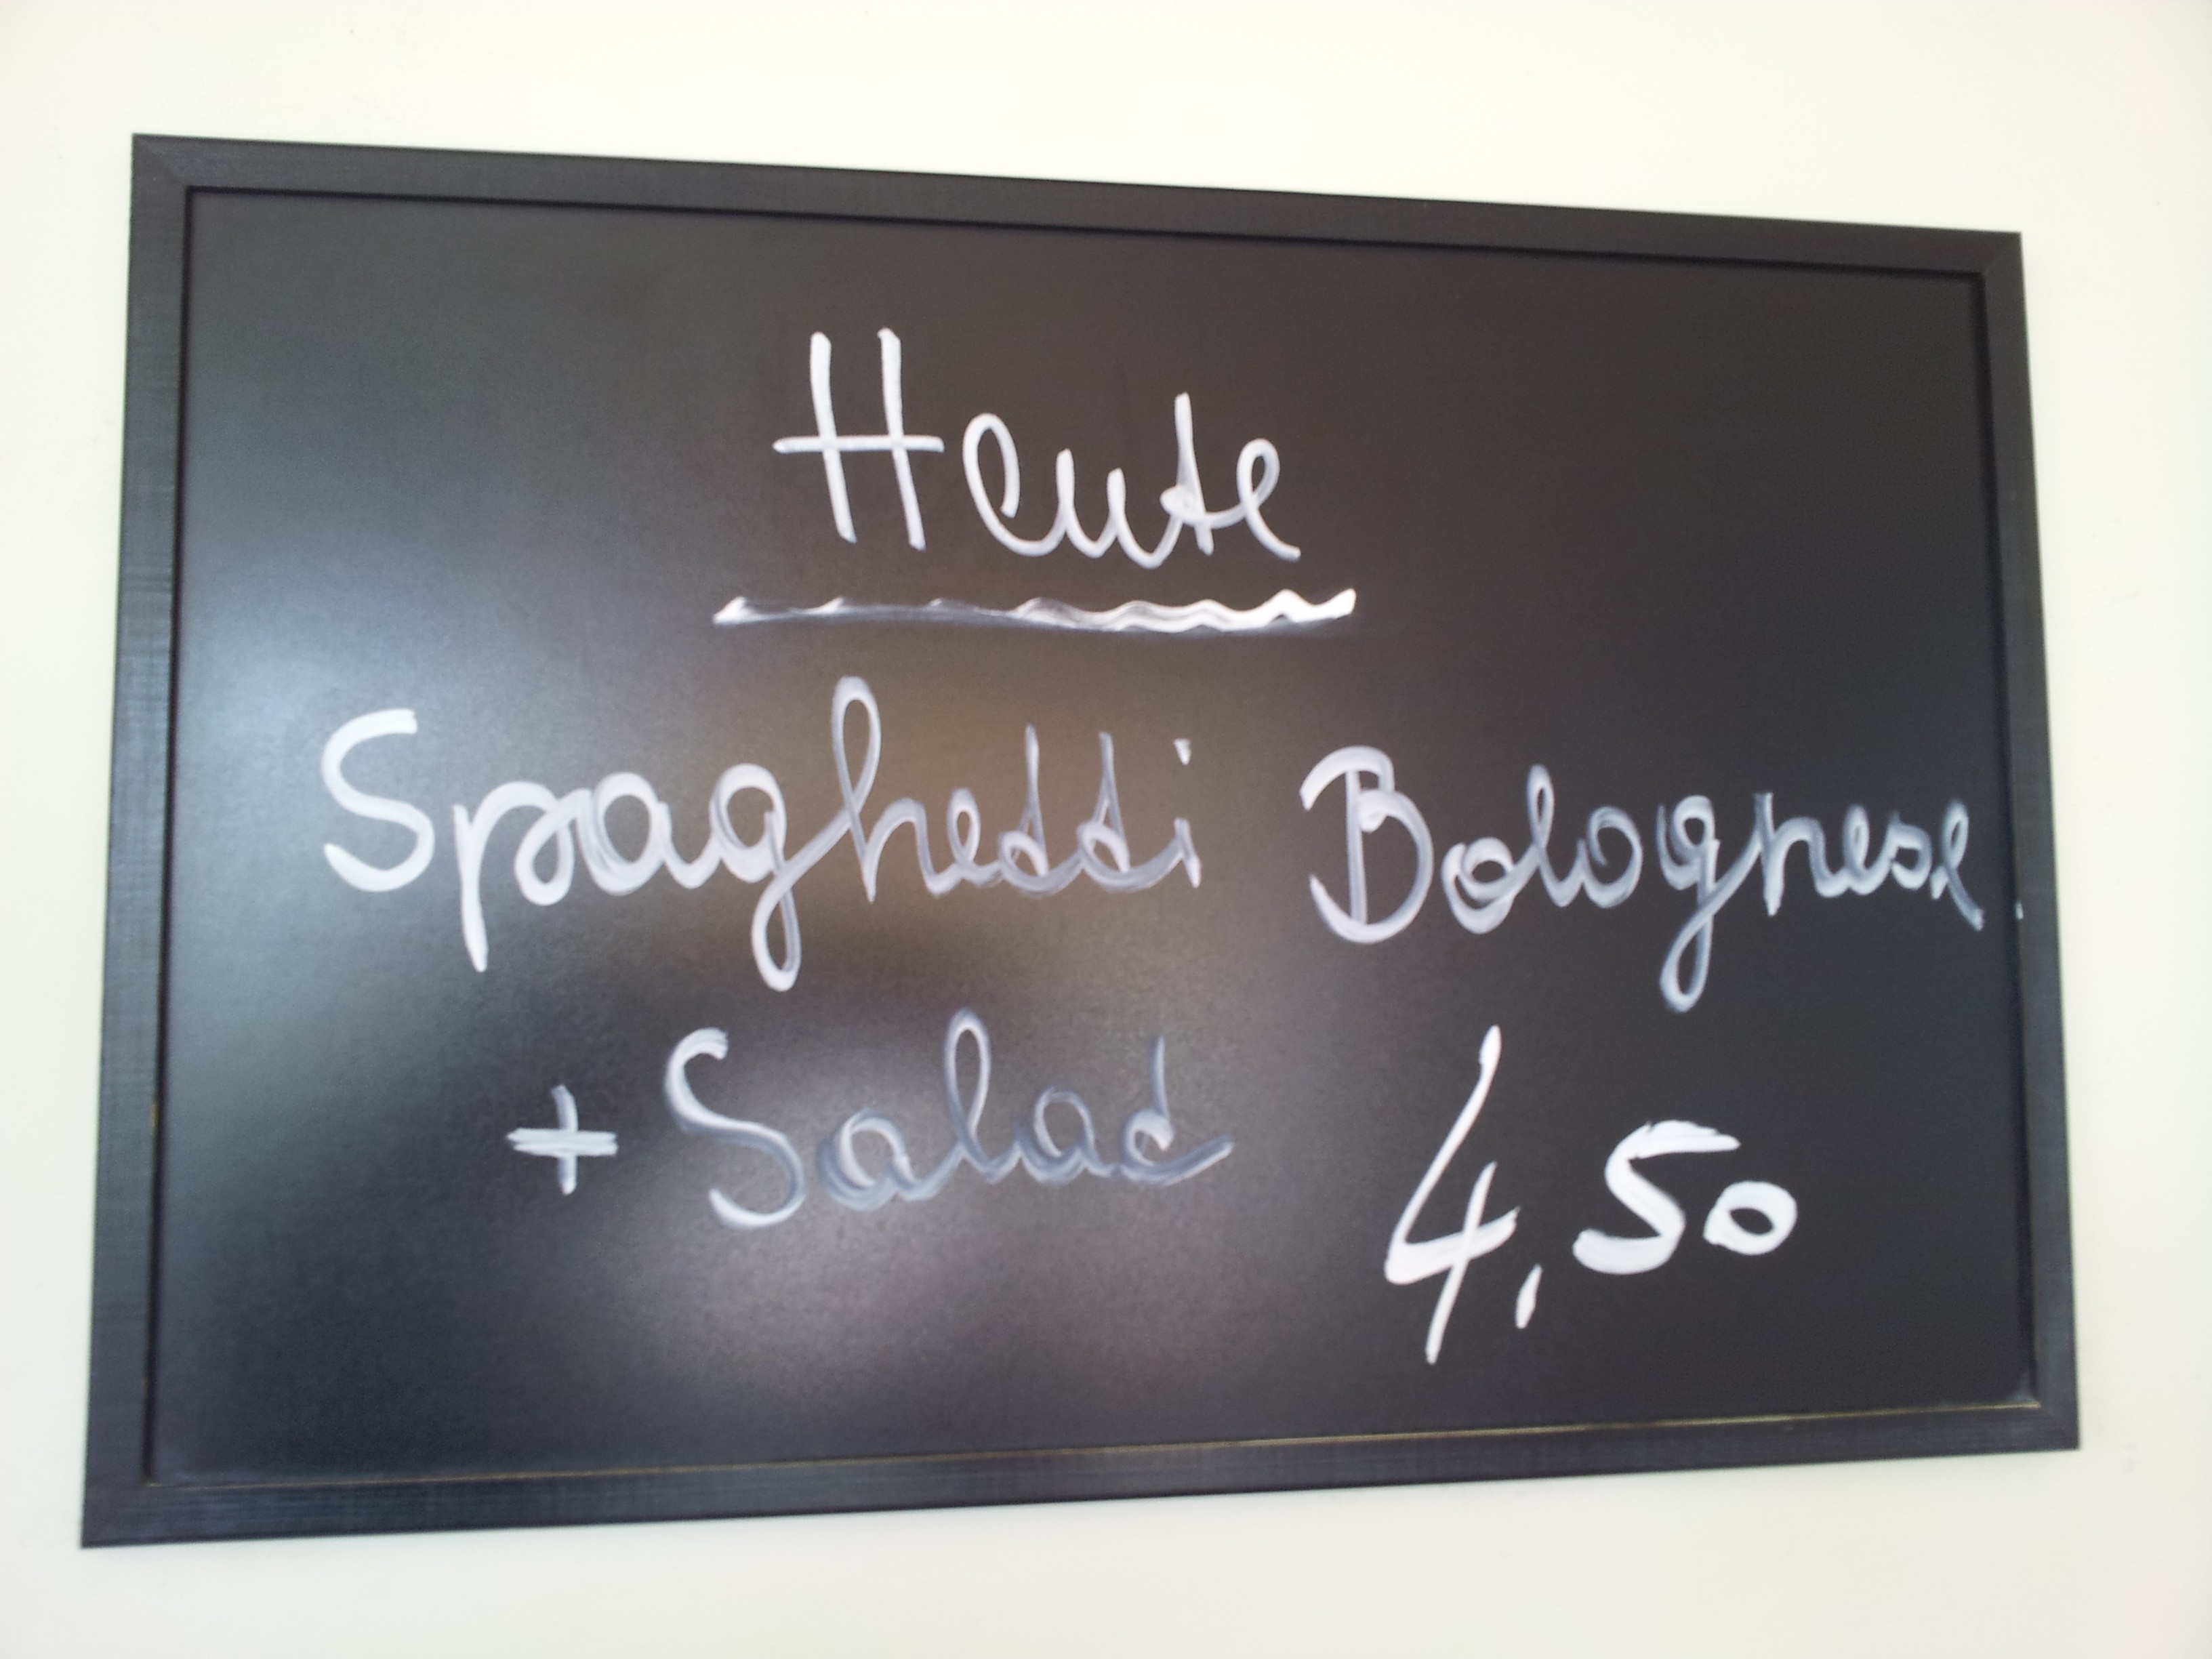 Heute
Spaghetti Bolognese
+ Salat 4,50